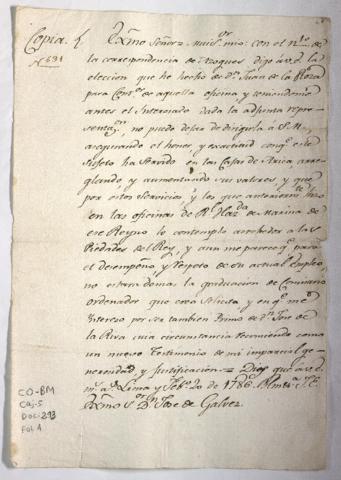 Copia. Exmo Señor. Mui Sr mio: con el no de
No 531 la correspondencia de Azogues digo a v.e. la
eleccion que he hecho de Dn Juan de la Riva
para Contor de aquella oficina y remediendo
antes el Interesado dada la adjunta repre-
sentaon, no puedo dejar de dirigirla a S.M.
asegurando el honor, y exactitud conqe este
sujeto ha servido en las Cajas de Arica arre-
glando, y aumentando sus valores y que
por estos servicios, y los que anteriormte hizo
en las oficinas de Rl Hazda de Marina de
ese Reyno lo contemplo acreedor a las
Piedades del Rey, y aun me parece qe para
el desempeño, y respeto de su actual Empleo,
no estará demas la graduacion de Comisario
ordenador que crea solicita y en qe me
Intereso por ser tambien Primo de Dn Jose de
la Riva cuia circunstancia recomiendo como
un nuevo Testimonio de mi imparcial ge-
nerosidad, y justificacion = Dios que a v.e.
ms as Lima y Febo 20 de 1786.
Exmo Sor Dn Jose de Galvez.
CO-BM
Caj-5
Doc-293
Fol.1